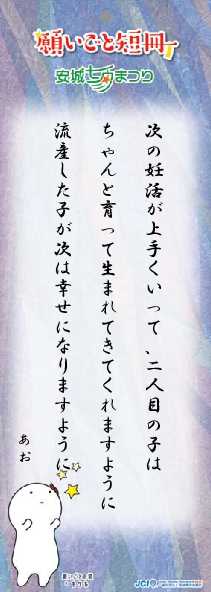 願いごと短冊
安城七夕まつり
次の妊活が上手くいって、二人目の子は
ちゃんと育って生まれてきてくれますように
流産した子が次は幸せになりますように
あお
願いごと短冊
JCI